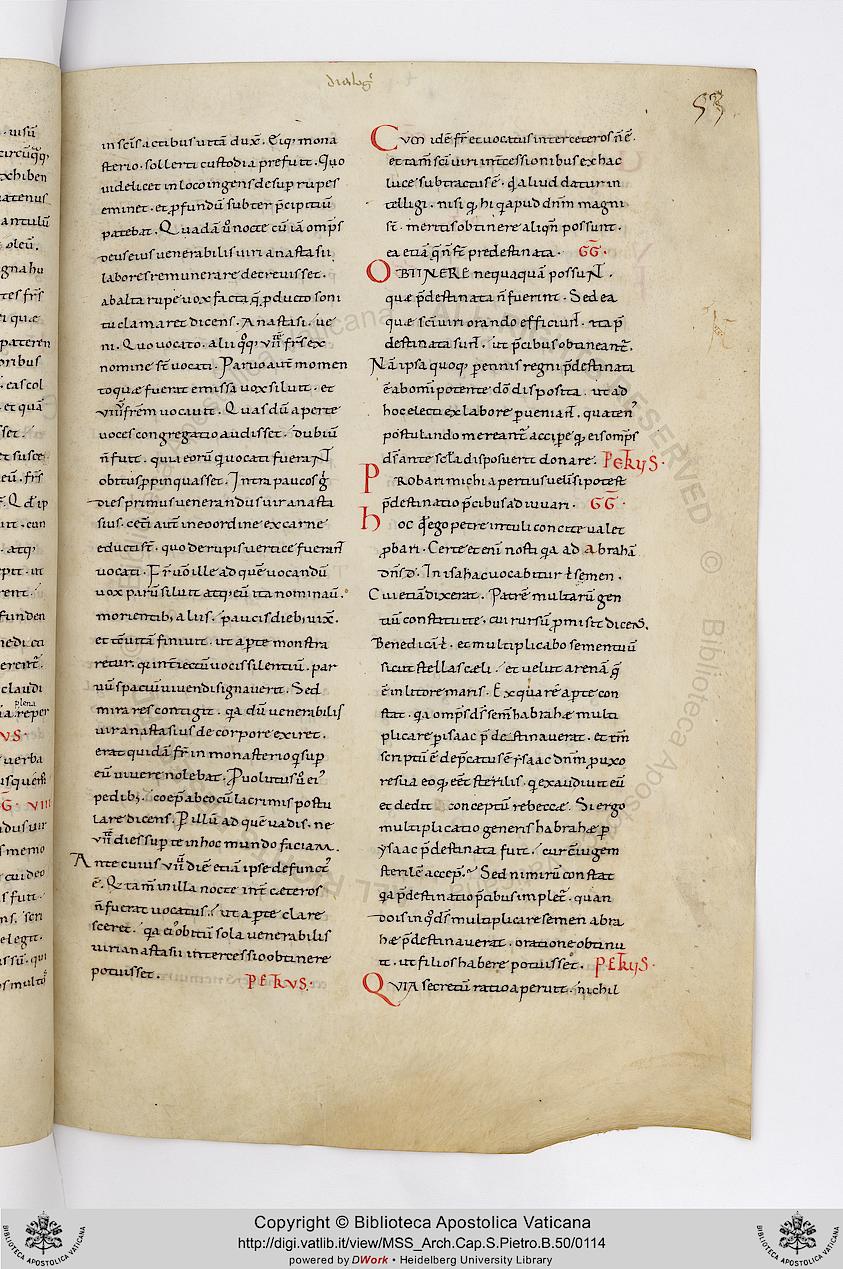 dialog᷒
53
in scīs actibus uitā duxͭ. Eiq; mona
sterio. sollerti custodia prefuit. Quo
uidelicet in loco ingens desuꝑ rupes
eminet. et ꝓfundū subter p̄cipitiū
patebat. Quadā ũ nocte cū iā omp̄s
deus eius uenerabilis uiri anastasii
labores remunerare decreuisset.
ab alta rupe uox facta ē, q̄ ꝓducto soni
tu clamaret dicens. Anastasi. ue
ni. Quo uocato. alii q̊q; VII fr̄s ex
nomine st̄ uocati. Paruo aut̄ momen
to quæ fuerat emissa uox siluit. et
VIII fr̄em uocauit. Quas dū aperte
uoces congregatio audisset. dubiū
n̄ fuit. quia eorū q uocati fueraNT
obitus ꝓpinquasset. Intra paucos g̊
dies primus uenerandus uir anasta
sius. ceti aut̄ in eo ordine ex carne
educti st̄. quo de rupis uertice fueraNT
uocati. Fr̄ ũo ille ad quē uocandū
uox parū siluit atq; eū ita nominauͭ.
morientib; aliis. paucis dieb; uixͭ.
et tc̄ uitā finiuit. ut aperte monstra
retur. q inͭiectū uocis silentiū. par
uū spatiū uiuendi signauerit. Sed
mira res contigit. qa dū uenerabilis
uir anastasius de corpore exiret.
erat quidā fr̄ in monasterio q suꝑ
eū uiuere nolebat. Puolutus ũ ei᷒
pedib; coep̄ ab eo cū lacrimis postu
lare dicens. P illū ad quē uadis. ne
VII dies super te in hoc mundo faciam.
Ante cuius VII diē etiā ipse defunct᷒
ē. Q tam̄ in illa nocte inͭ cæteros
n̄ fuerat uocatus. ut aperte clare
sceret. qa ei᷒ obitū sola uenerabilis
uiri anastasii intercessio obtinere
potuisset. PETRVS.
Cum idē fr̄ et uocatus inter ceteros n̄ ē.
et tam̄ sc̄i uiri inͭcessionibus ex hac
luce subtractus ē. qd aliud datur in
telligi. nisi q, hi q apud dn̄m magni
st̄. meriti obtinere aliqn̄ possunt.
ea etiā q n̄ st̄ predestinata. GG.
OBTINERE nequaquā possuNT.
quæ p̄destinata n̄ fuerint. Sed ea
quæ sc̄i uiri orando efficiuNT. ita p̄
destinata suNT. ut p̄cibus obtineantͭ.
Nā ipsa quoq; ꝑennis regni p̄destinata
ē ab omīpotente dō disposita. ut ad
hoc electi ex labore ꝑueniaNT. quaten᷒
postulando mereantͭ accipe q, eis omp̄s
ds̄ ante scl̄a disposuerit donare. PETRVS.
Probari michi apertius uelī si potest
p̄destinatio p̄cibus adiuuari. GG.
Hoc qd ego petre intuli concite ualet
ꝓbari. Certe etenī nosti qa ad Abrahā
dn̄s d̄. In isahac uocabitur t̄ semen.
Cui etiā dixerat. Patrē multarū gen
tiū constitui te. cui rursū ꝓmisit dicens.
Benedicā t̄. et multiplicabo semen tuū
sicut stellas cæli. et uelut arenā q̄
ē in litore maris. Ex qua re aperte con
stat. qa omp̄s ds̄ sem̄ habrahæ multi
plicare ꝑ isaac p̄destinauerat. et tm̄
scriptū ē dep̄catus ē ysaac dn̄m ꝓ uxo
re sua eo q, eēt sterilis. q exaudiuit eū
et dedit conceptū rebeccæ. Si ergo
multiplicatio generis habrahæ ꝑ
ysaac p̄destinata fuit. cur c̄iugem
sterilē accep̄. Sed nimirū constat
qa p̄destinatio p̄cibus impletͭ. quan
do is in q̊ ds̄ multiplicare semen abra
hæ p̄destinauerat. oratione obtinu
it. ut filios habere potuisset. PETRVS.
QVIA secretū ratio aperuit. nichil
Copyright © Biblioteca Apostolica Vaticana
http://digi.vatlib.it/view/MSS_Arch.Cap.S.Pietro.B.50/0114
powered by DWork • Heidelberg University Library